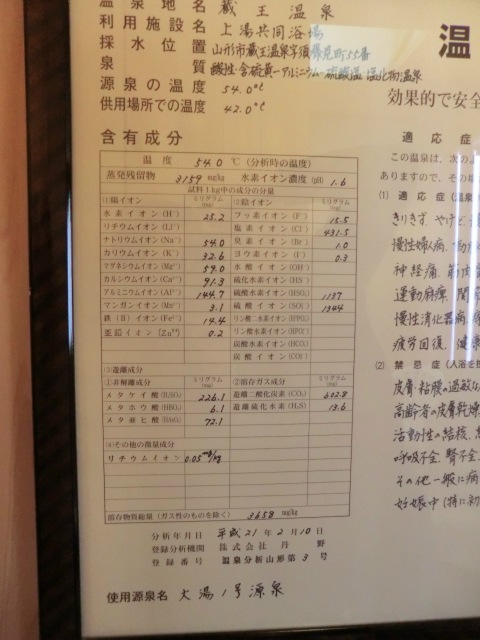 温泉地名 蔵王温泉
利用施設名 上湯共同浴場
採水位置 山形市蔵王温泉字須
泉質 酸性・含硫黄-アルミニウム-硫酸塩・塩化物温泉
源泉の温度 54.0℃
供用場所での温度 42.0℃
含有成分
温度 54.0 ℃ (分析時の温度)
蒸発残留物 3159 mg/kg 水素イオン濃度(pH) 1.6
試料1kg中の成分の分量
①陽イオン ミリグラム(mg) ②陰イオン ミリグラム(mg)
水素イオン(H⁺) 25.2 フッ素イオン(F⁻) 15.5
リチウムイオン(Li⁺) 塩素イオン(Cl⁻) 431.5
ナトリウムイオン(Na⁺) 54.0 臭素イオン(Br⁻) 1.0
カリウムイオン(K⁺) 32.6 ヨウ素イオン(I⁻) 0.3
マグネシウムイオン(Mg²⁺) 59.0 水酸イオン(OH⁻)
カルシウムイオン(Ca²⁺) 91.3 硫化水素イオン(HS⁻)
アルミニウムイオン(Al³⁺) 144.7 硫酸水素イオン(HSO₄⁻) 1137
マンガンイオン(Mn²⁺) 3.1 硫酸イオン(SO₄²⁻) 1344
鉄(Ⅱ)イオン(Fe²⁺) 14.4 リン酸二水素イオン(H₂PO₄⁻)
亜鉛イオン(Zn²⁺) 0.2 リン酸水素イオン(HPO₄²⁻)
炭酸水素イオン(HCO₃⁻)
炭酸イオン(CO₃²⁻)
③遊離成分
①非解離成分 ミリグラム(mg) ②溶存ガス成分 ミリグラム(mg)
メタケイ酸(H₂SiO₃) 226.1 遊離二酸化炭素(CO₂) 602.8
メタホウ酸(HBO₂) 6.1 遊離硫化水素(H₂S) 13.6
メタ亜ヒ酸(HAsO₂) 72.1
④その他の微量成分
リチウムイオン 0.05mg/kg
溶存物質総量(ガス性のものを除く) 3658 mg/kg
分析年月日 平成21年2月10日
登録分析機関 株式会社 丹野
登録番号 温泉分析山形第3号
使用源泉名 大湯1号源泉
温
効果的で安全
適応症
この温泉は、次の
ありますので、その場
(1) 適応症(温泉
きりきず、やけど、
慢性婦人病、
神経痛、筋肉
運動麻痺、関節
慢性消化器病、
疲労回復、健康
(2) 禁忌症(入浴を
皮膚・粘膜の過敏な
高齢者の皮膚乾燥
活動性の結核、
呼吸不全、腎不全、
その他一般に病
妊娠中(特に初